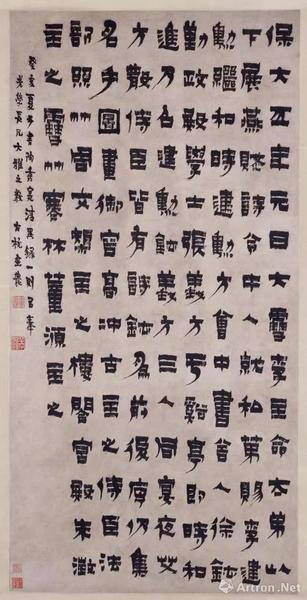 保大元日大雪李主命太弟以
下展燕賦詩命中人就私第賜李建
勳繼和時建勳方會中書舍人徐鉉
勤政殿學士張義方于谿亭即時和
進乃召建勳鉉義方三人同宴夜艾
方散侍臣皆有詩鉉為前後序仍集
名手圖畫御容高沖古主之侍臣法
部絲竹周文榘主之樓閣宮殿朱澂
主之雪竹寒林董源主之
癸亥夏五書清異錄一則呂奉
長兄大雅之教
Artron.Net